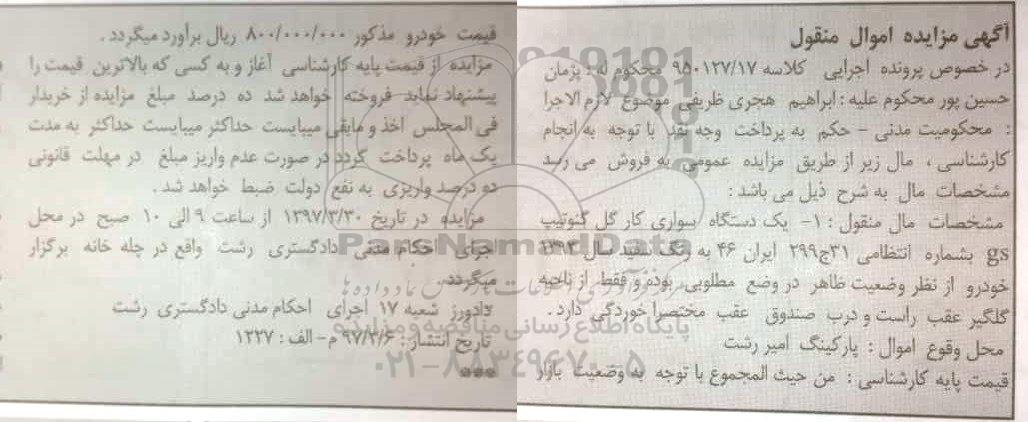 آگهی مزایده اموال منقول
در خصوص پرونده اجرایی کلاسه ۹۵۰۱۲۷/۱۷ محکوم له: پژمان
حسین پور محکوم علیه: ابراهیم هجری ظریفی موضوع لازم الاجرا
: محکومیت مدنی - حکم به پرداخت وجه نقد با توجه به انجام
کارشناسی، مال زیر از طریق مزایده عمومی به فروش می رسد
مشخصات مال به شرح ذیل می باشد:
مشخصات مال منقول: ۱- یک دستگاه سواری کار گل کنوتیپ
gs بشماره انتظامی ۳۱ج۲۹۹ ایران ۴۶ به رنگ سفید سال ۱۳۹۳
خودرو از نظر وضعیت ظاهر در وضع مطلوبی بوده و فقط از ناحیه
گلگیر عقب راست و درب صندوق عقب مختصرا خوردگی دارد.
محل وقوع اموال: پارکینگ امیر رشت
قیمت پایه کارشناسی: من حیث المجموع با توجه به وضعیت بازار
قیمت خودرو مذکور ۸۰۰/۰۰۰/۰۰۰ ریال برآورد میگردد.
مزایده از قیمت پایه کارشناسی آغاز و به کسی که بالاترین قیمت را
پیشنهاد نماید فروخته خواهد شد ده درصد مبلغ مزایده از خریدار
فی المجلس اخذ و مابقی میبایست حداکثر میبایست حداکثر به مدت
یک ماه پرداخت گردد در صورت عدم واریز مبلغ در مهلت قانونی
ده درصد واریزی به نفع دولت ضبط خواهد شد.
مزایده در تاریخ ۱۳۹۷/۳/۳۰ از ساعت ۹ الی ۱۰ صبح در محل
اجرای احکام مدنی دادگستری رشت واقع در چله خانه برگزار
میگردد.
دادورز شعبه ۱۷ اجرای احکام مدنی دادگستری رشت
تاریخ انتشار: ۹۷/۳/۶ م-الف: ۱۲۲۷
***
Pars Namad Data
پایگاه اطلاع رسانی مناقصه و مزایده
۰۲۱-۸۸۳۴۹۶۷۰-۵